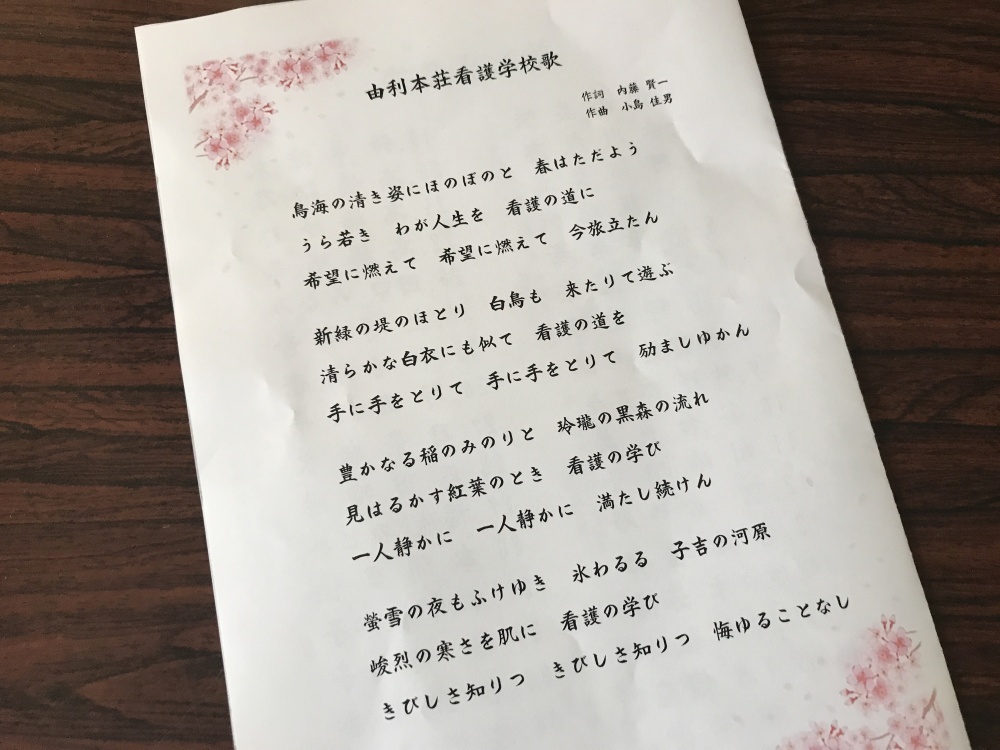 由利本荘看護学校歌
作詞　内藤 賢一
作曲　小島 佳男
鳥海の清き姿にほのぼのと　春はただよう
うら若き　わが人生を　看護の道に
希望に燃えて　希望に燃えて　今旅立たん
新緑の堤のほとり　白鳥も　来たりて遊ぶ
清らかな白衣にも似て　看護の道を
手に手をとりて　手に手をとりて　励ましゆかん
豊かなる稲のみのりと　玲瓏の黒森の流れ
見はるかす紅葉のとき　看護の学び
一人静かに　一人静かに　満たし続けん
螢雪の夜もふけゆき　氷わるる　子吉の河原
峻烈の寒さを肌に　看護の学び
きびしさ知りつ　きびしさ知りつ　悔ゆることなし